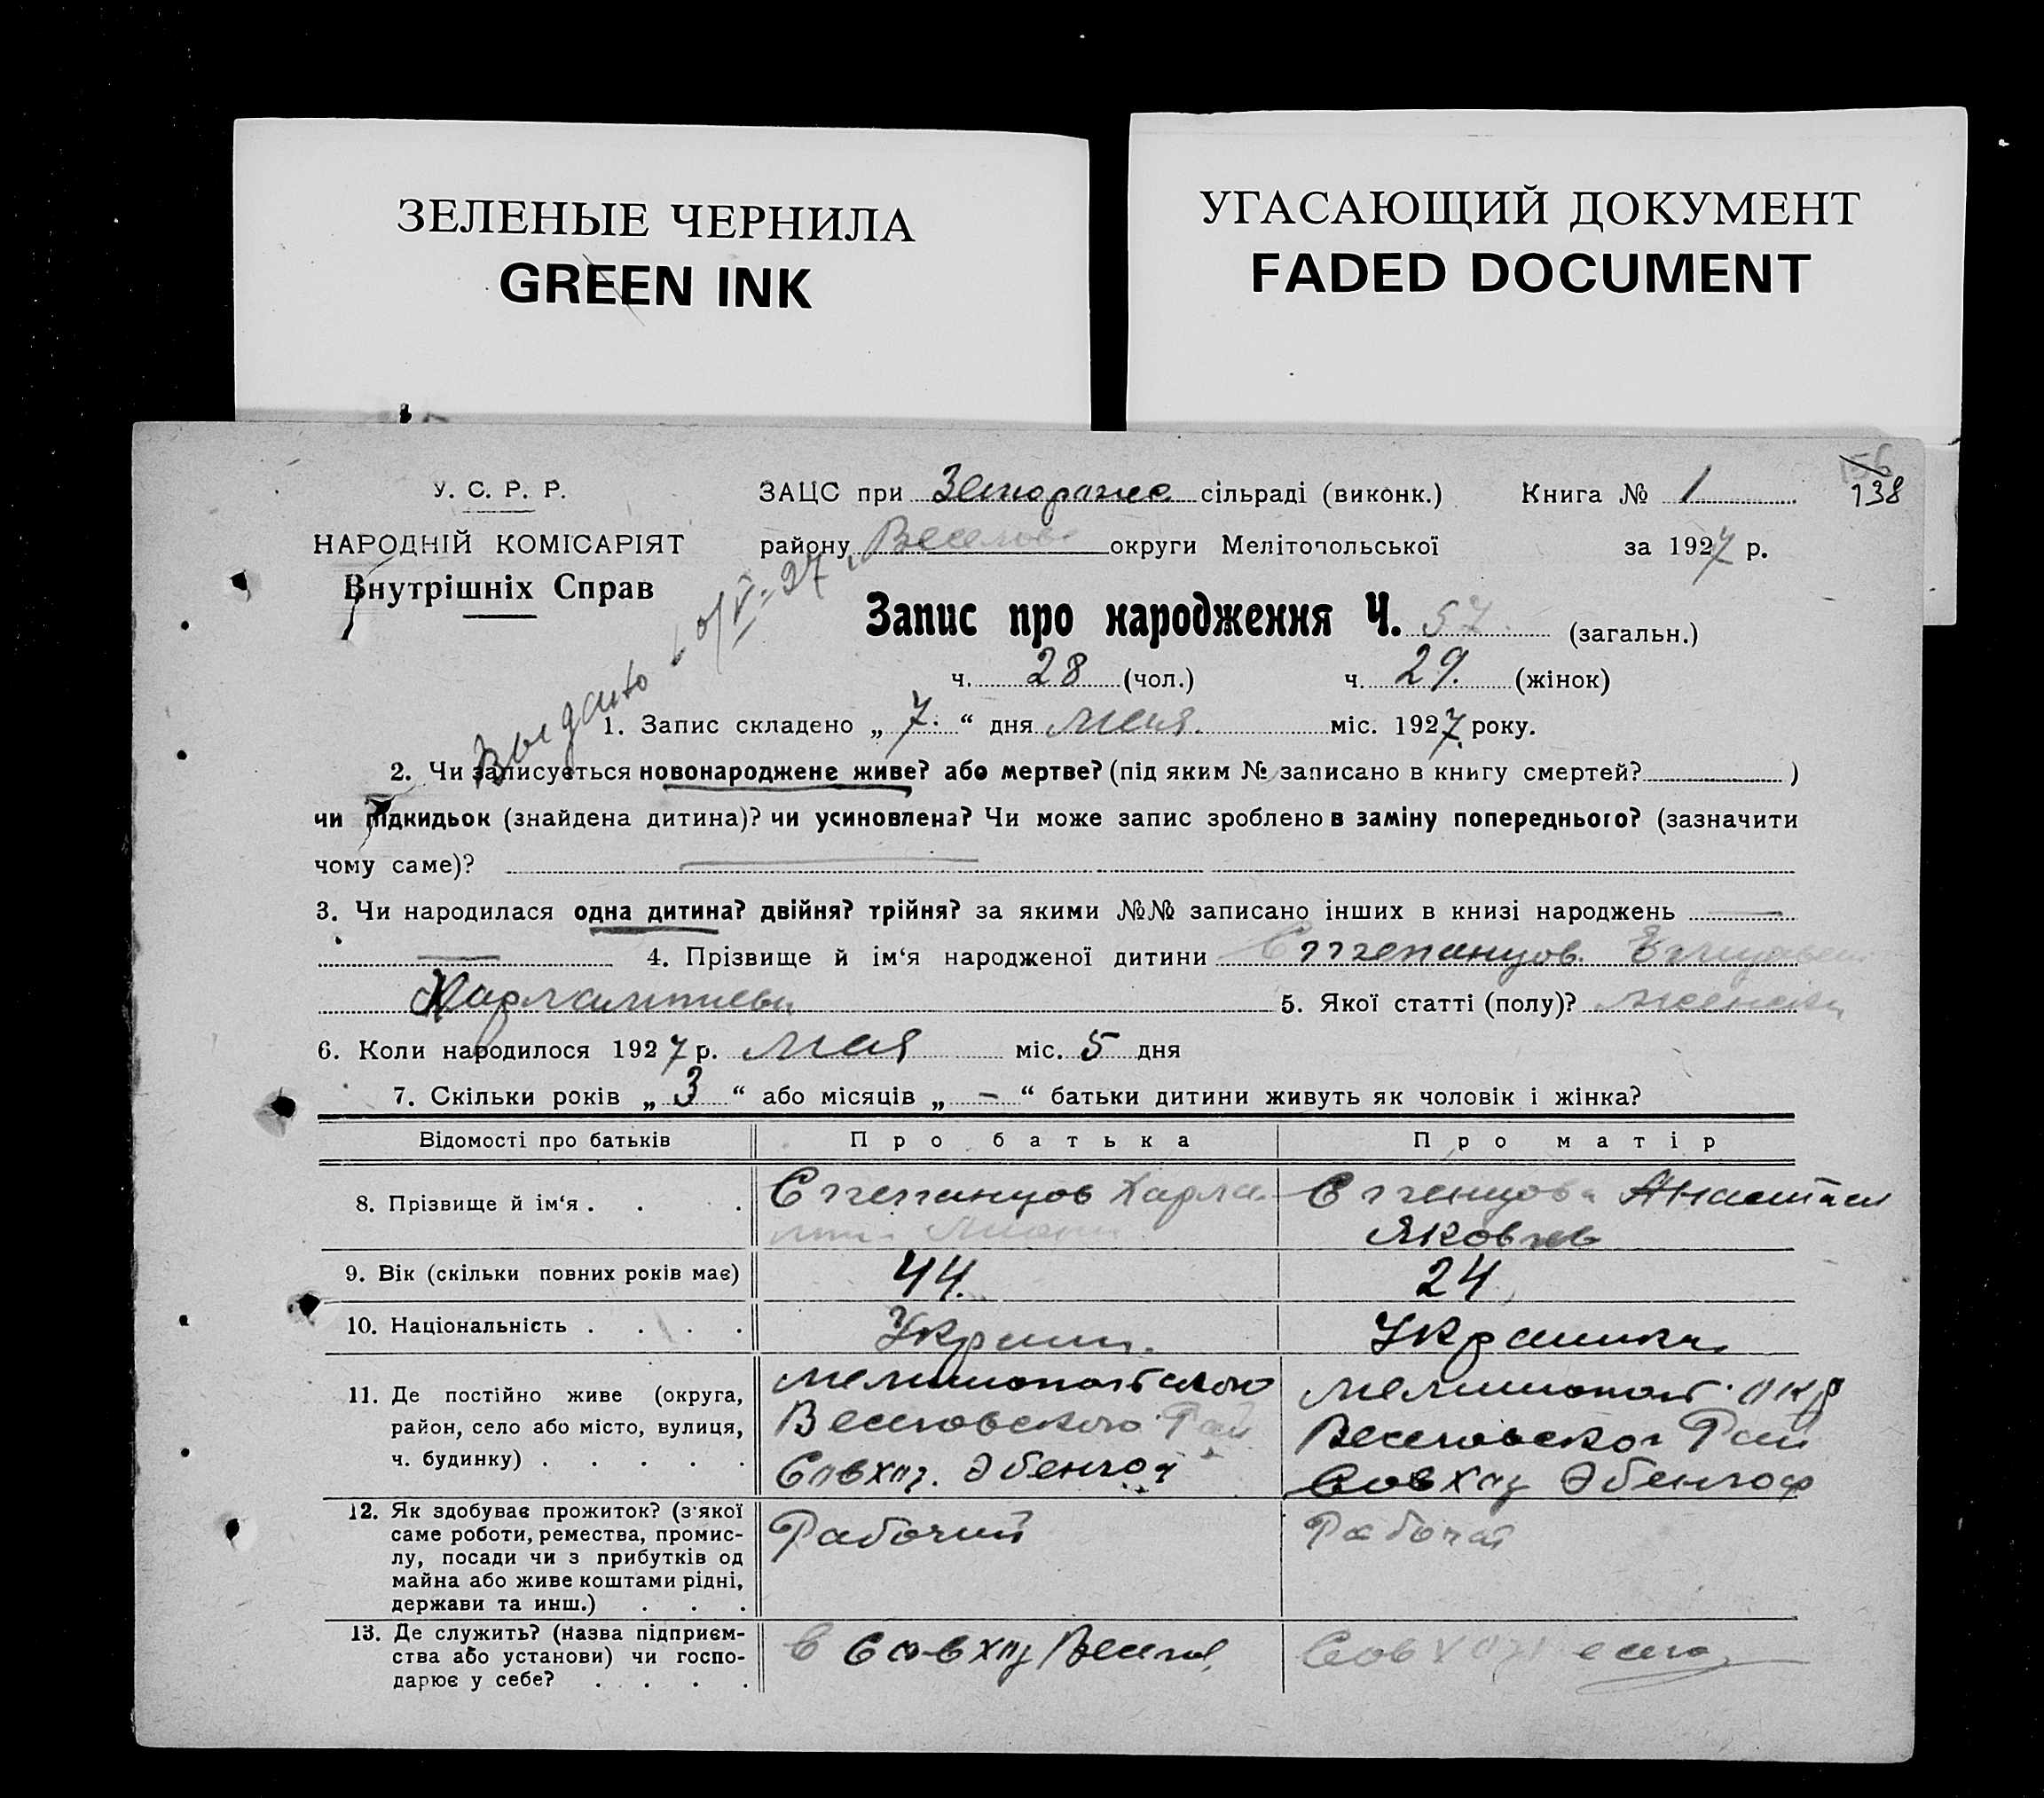 ЗЕЛЕНЫЕ ЧЕРНИЛА
GREEN INK
УГАСАЮЩИЙ ДОКУМЕНТ
FADED DOCUMENT
156
138
У. С. Р. Р.
НАРОДНІЙ КОМІСАРІЯТ
Внутрішніх Справ
ЗАЦС при сільраді (виконк.) Книга № 1
району Веселовс округи Мелітопольської за 1927 р.
Выдано 10/V-27
Запис про народження Ч. 57 (загальн.)
ч. 28 (чол.) ч. 29. (жінок)
1. Запис складено „ 7. “ дня мая міс. 1927 року.
2. Чи записується новонароджене живе? або мертве? (під яким № записано в книгу смертей? )
чи підкидьок (знайдена дитина)? чи усиновлена? Чи може запис зроблено в заміну попереднього? (зазначити
чому саме)?
3. Чи народилася одна дитина? двійня? трійня? за якими №№ записано інших в книзі народжень —
— 4. Прізвище й ім‘я народженої дитини Степанцов
5. Якої статті (полу)? женски
6. Коли народилося 1927 р. мая міс. 5 дня
7. Скільки років „ 3 “ або місяців „ - “ батьки дитини живуть як чоловік і жінка?
Відомості про батьків Про батька Про матір
8. Прізвище й ім‘я . . . Степанцов Харла Анастаси
Яковлев
9. Вік (скільки повних років має) 44. 24
10. Національність . . . . Украин. Украинка
11. Де постійно живе (округа, район, село або місто, вулиця, ч. будинку) . . . . .
Мелитопольского
Веселовского Рай
Совхоз. Эбенгоф
Мелитопол. окр
Веселовског Рай
Совхоз Эбенгоф
12. Як здобуває прожиток? (з‘якої
саме роботи, ремества, промис-
лу, посади чи з прибутків од
майна або живе коштами рідні,
держави та инш.) . . .
Рабочий Рабочая
13. Де служить? (назва підприєм-
ства або установи) чи госпо-
дарює у себе? . . . .
в Совхоз Весел. Совхоз